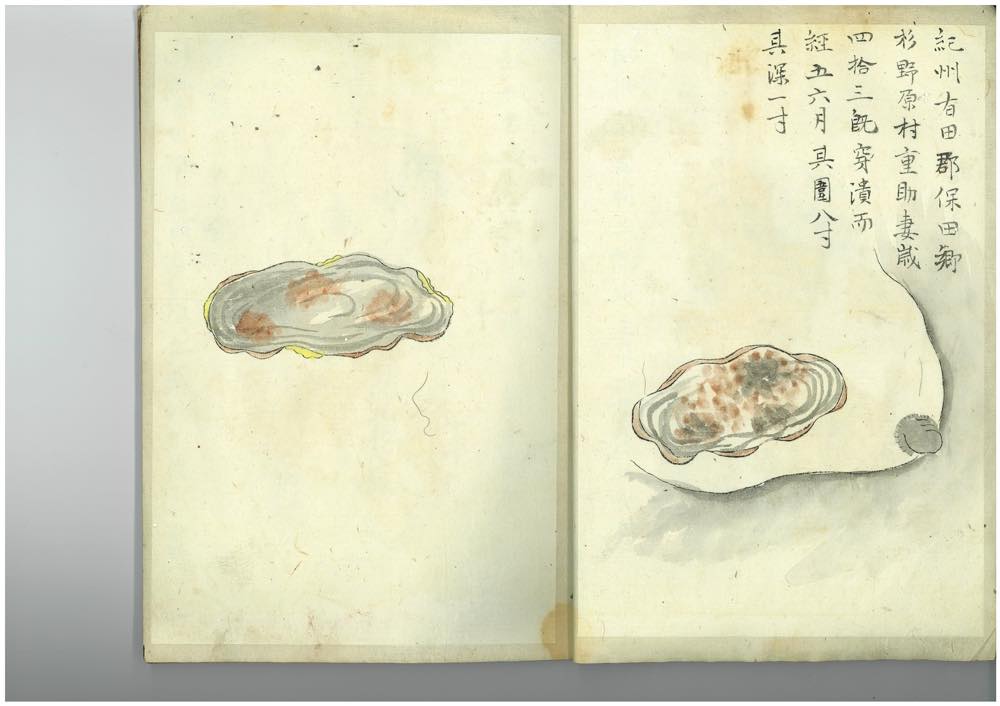 紀州有田郡保田郷
杉野原村重助妻歳
四拾三既穿潰而
経五六月其圍八寸
其深一寸